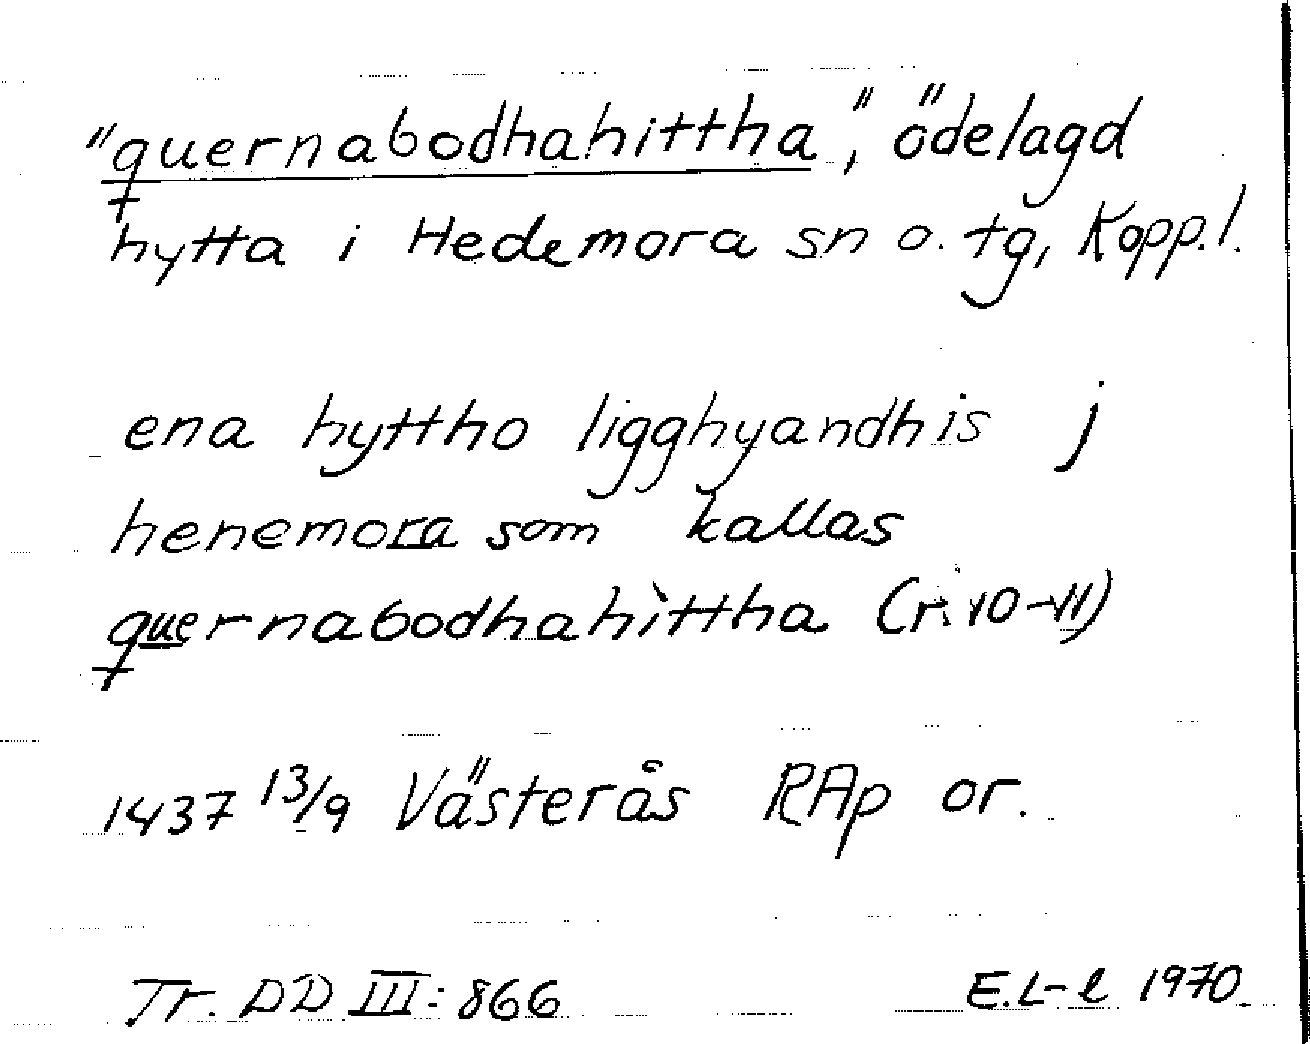 "quernabodhahittha", ödelagd
hytta i Hedemora sn o. tg, Kopp.l.
ena hyttho ligghyandhis j
henemora som kallas
quernabodhahittha (r. 10-11)
1437 13/9 Västerås RAp or.
Tr. DD III: 866
E.L-l 1970